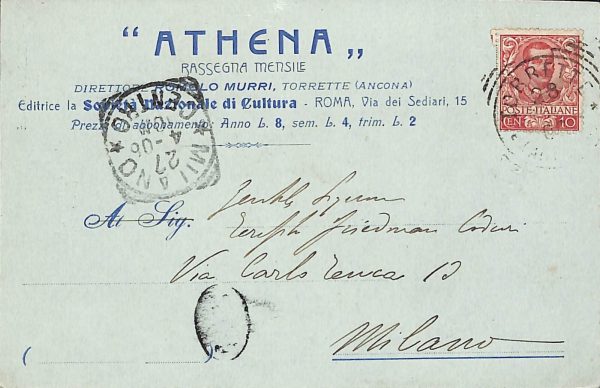 "ATHENA„
RASSEGNA MENSILE
DIRETTORE: ROMOLO MURRI, TORRETTE (ANCONA)
Editrice la Società Nazionale di Cultura - ROMA, Via dei Sediari, 15
Prezzi di abbonamento: Anno L. 8, sem. L. 4, trim. L. 2
POSTE ITALIANE
CEN 10
MILANO CENTRO
27
4-06
Al Sig.
Gentile Signora
Friedman
Via Carlo Tenca 13
Milano
( )